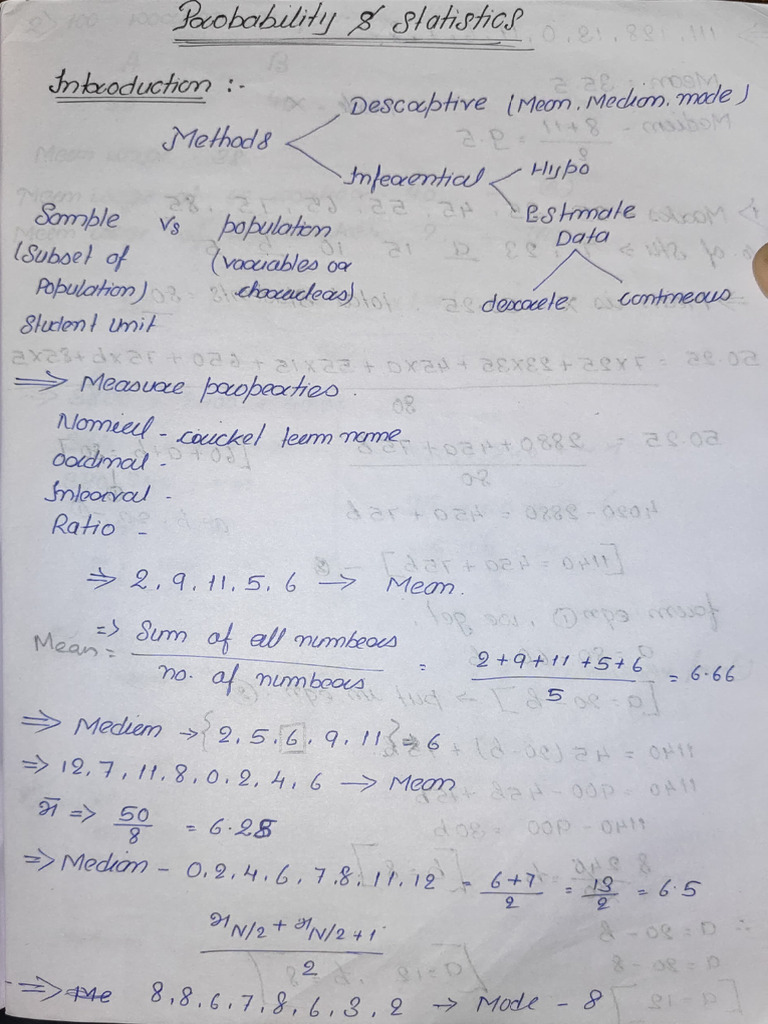 Probability & Statistics
Introduction :-
Methods
Descriptive (Mean, Median, mode)
Inferential
Hypo
Estimate
Sample vs population
(Subset of Population) (variables or characters)
Student unit
Data
descrete contineous
⇒ Measure properties.
Nomiel - cricket team name
Oordinal -
Interval -
Ratio -
⇒ 2, 9, 11, 5, 6 → Mean.
Mean = ⇒ Sum of all numbers / no. of numbers = 2+9+11+5+6 / 5 = 6.66
⇒ Mediem → {2, 5, 6, 9, 11} ⇒ 6
⇒ 12, 7, 11, 8, 0, 2, 4, 6 → Mean
x̄ ⇒ 50/8 = 6.25
⇒ Median - 0, 2, 4, 6, 7, 8, 11, 12 = 6+7/2 = 13/2 = 6.5
x N/2 + x N/2 + 1 / 2
⇒ 8, 8, 6, 7, 8, 6, 3, 2 → Mode - 8